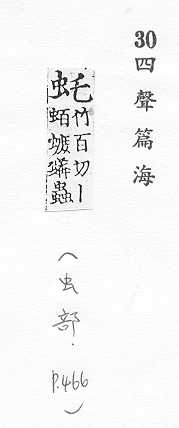 30四聲篇海
蚝
竹百切丨
蛨蟲
（虫部．
P.466）